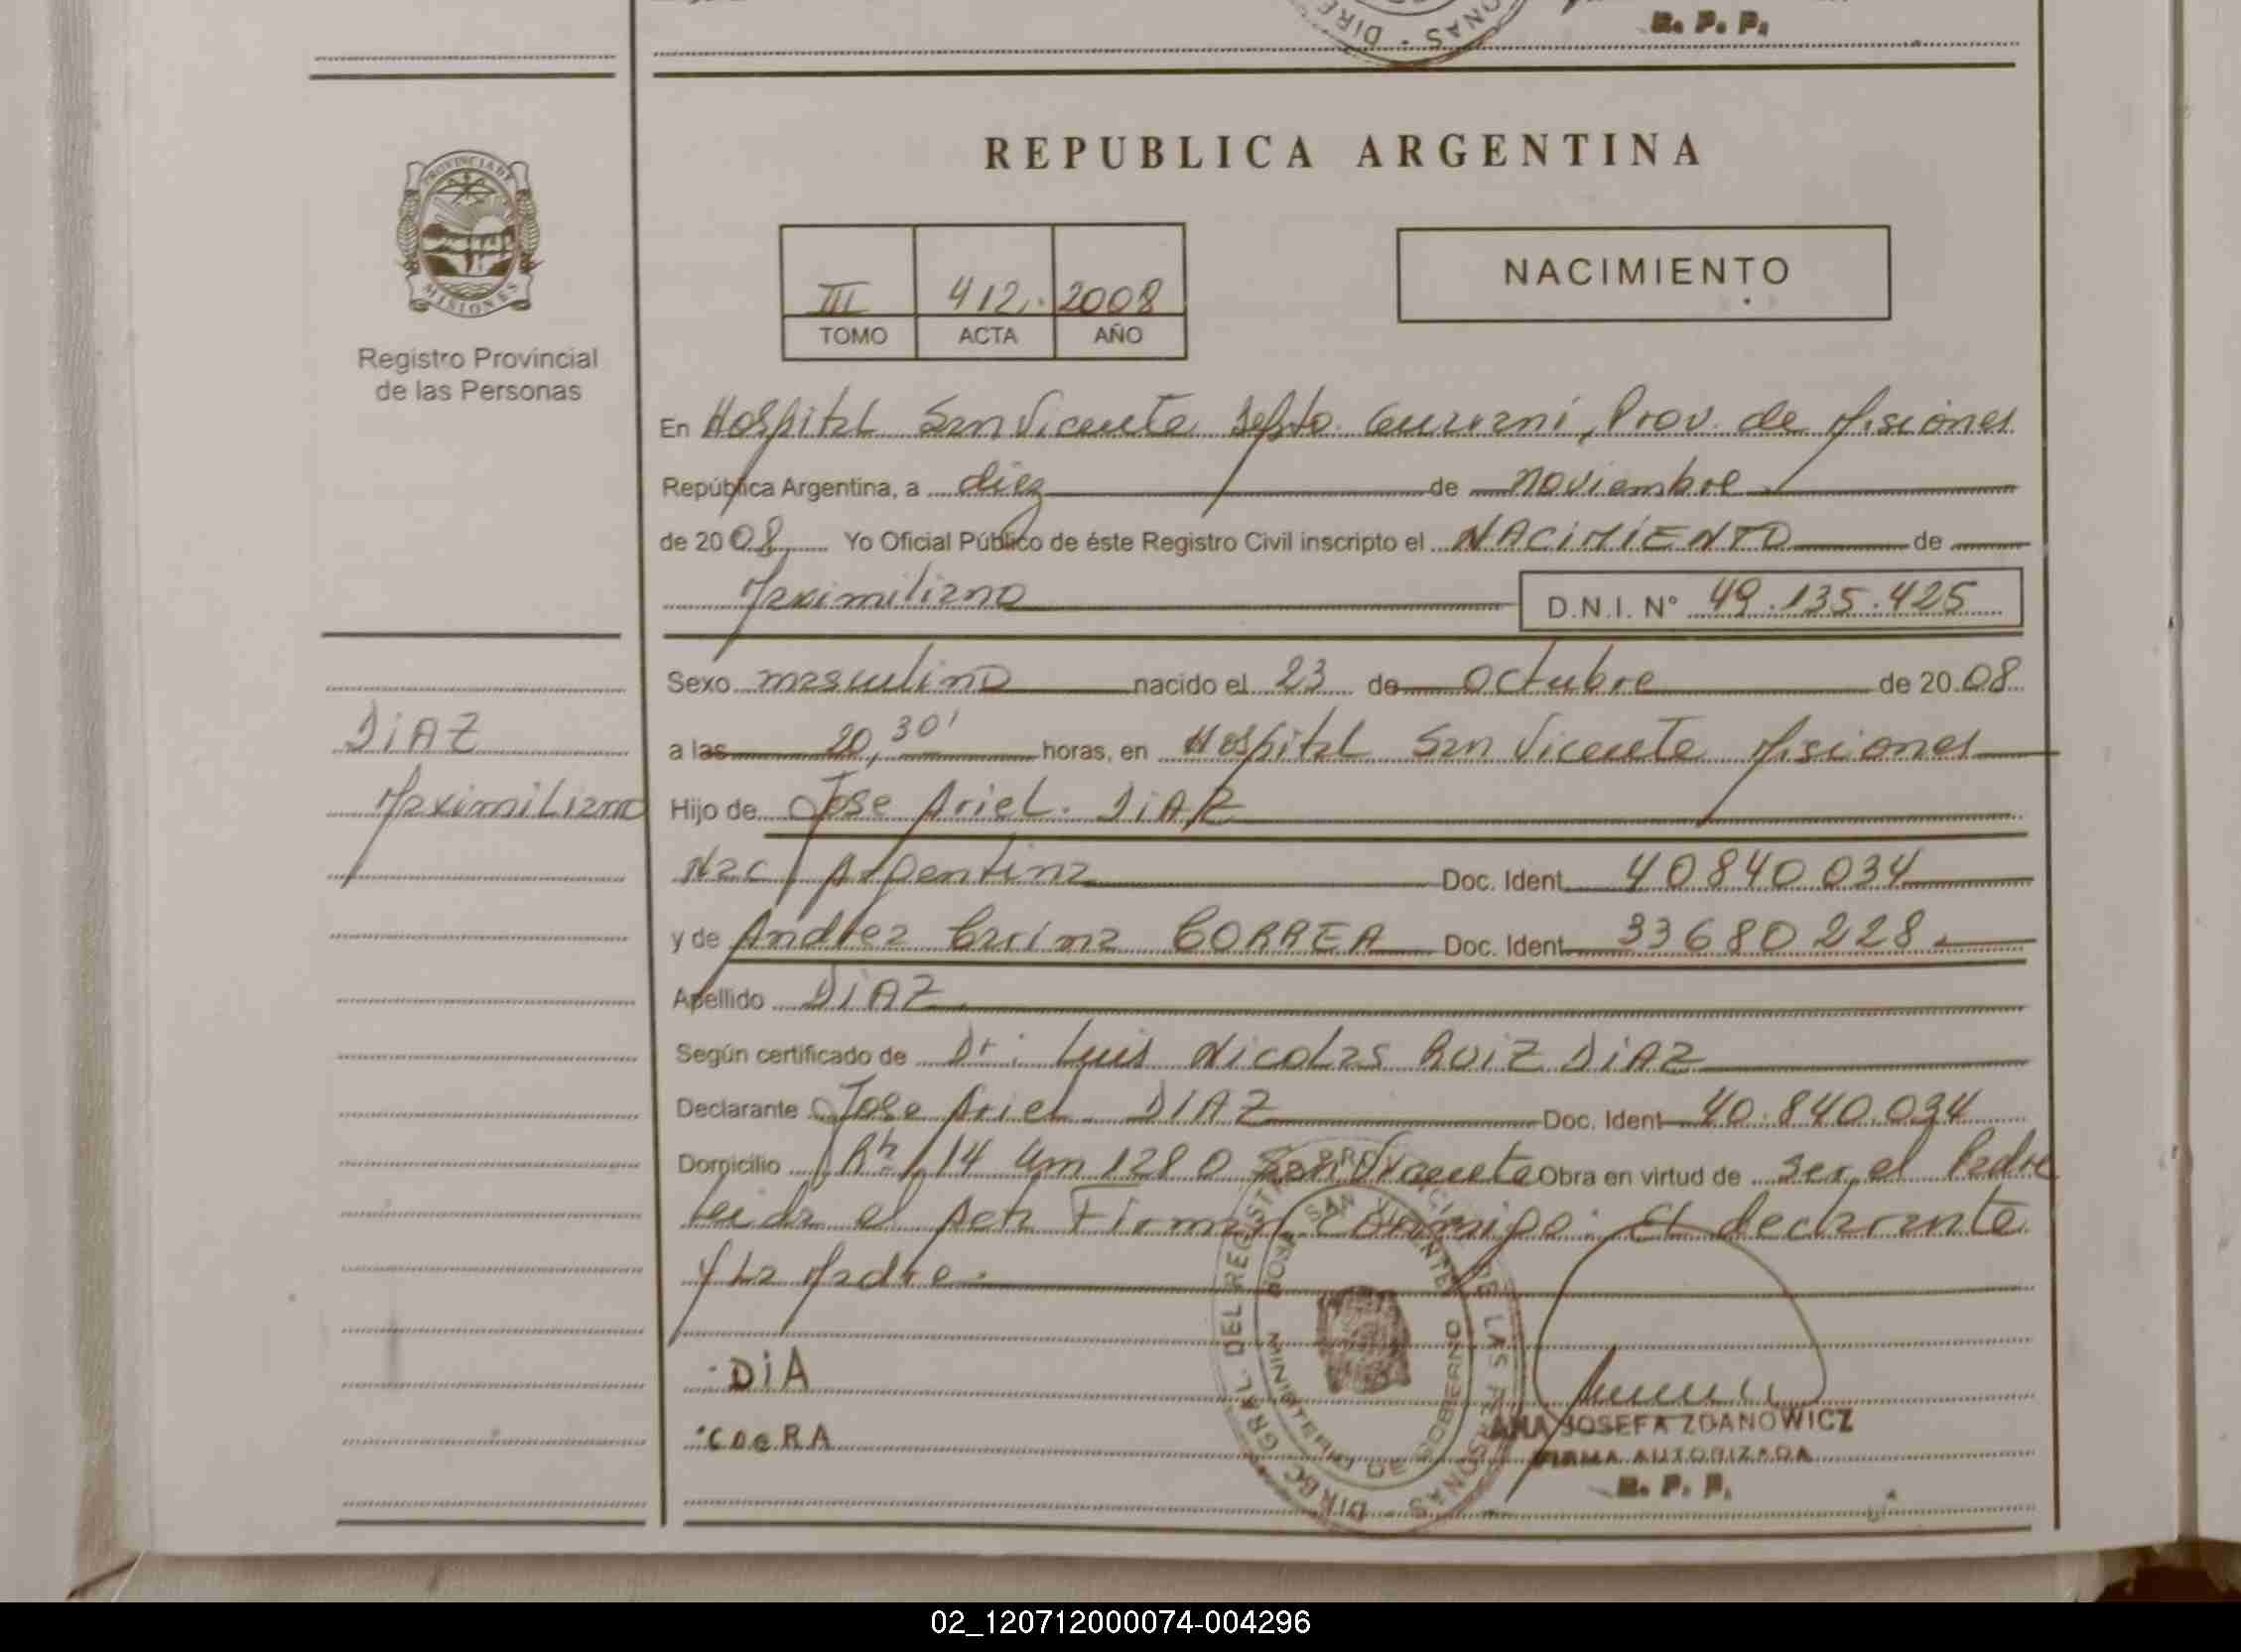 R. P. P.
REPUBLICA ARGENTINA
PROVINCIA DE
MISIONES
Registro Provincial
de las Personas
NACIMIENTO
III 412. 2008
TOMO ACTA AÑO
En Hospital San Vicente Depto Guaraní, Prov. de Misiones
República Argentina, a diez de noviembre
de 2008 Yo Oficial Público de éste Registro Civil inscripto el NACIMIENTO de
Maximiliano D.N.I. Nº 49.135.425
Sexo masculino nacido el 23 de Octubre de 2008
a las 20,30' horas, en Hospital San Vicente Misiones
DIAZ
Maximiliano
Hijo de Jose Ariel. DIAZ
Nac Argentina Doc. Ident 40840034
y de Andrea Carina CORREA Doc. Ident 33680228.
Apellido DIAZ
Según certificado de Dr: Luis Nicolas RUIZ DIAZ
Declarante Jose Ariel DIAZ Doc. Ident 40.840.034
Domicilio 14 Km 1280 San Vicente Obra en virtud de ser el Padre
Leida el Acta Firman Conmigo: El declarante
y La Madre.
DIA
ANA JOSEFA ZDANOWICZ
FIRMA AUTORIZADA
R. P. P.
02_120712000074-004296